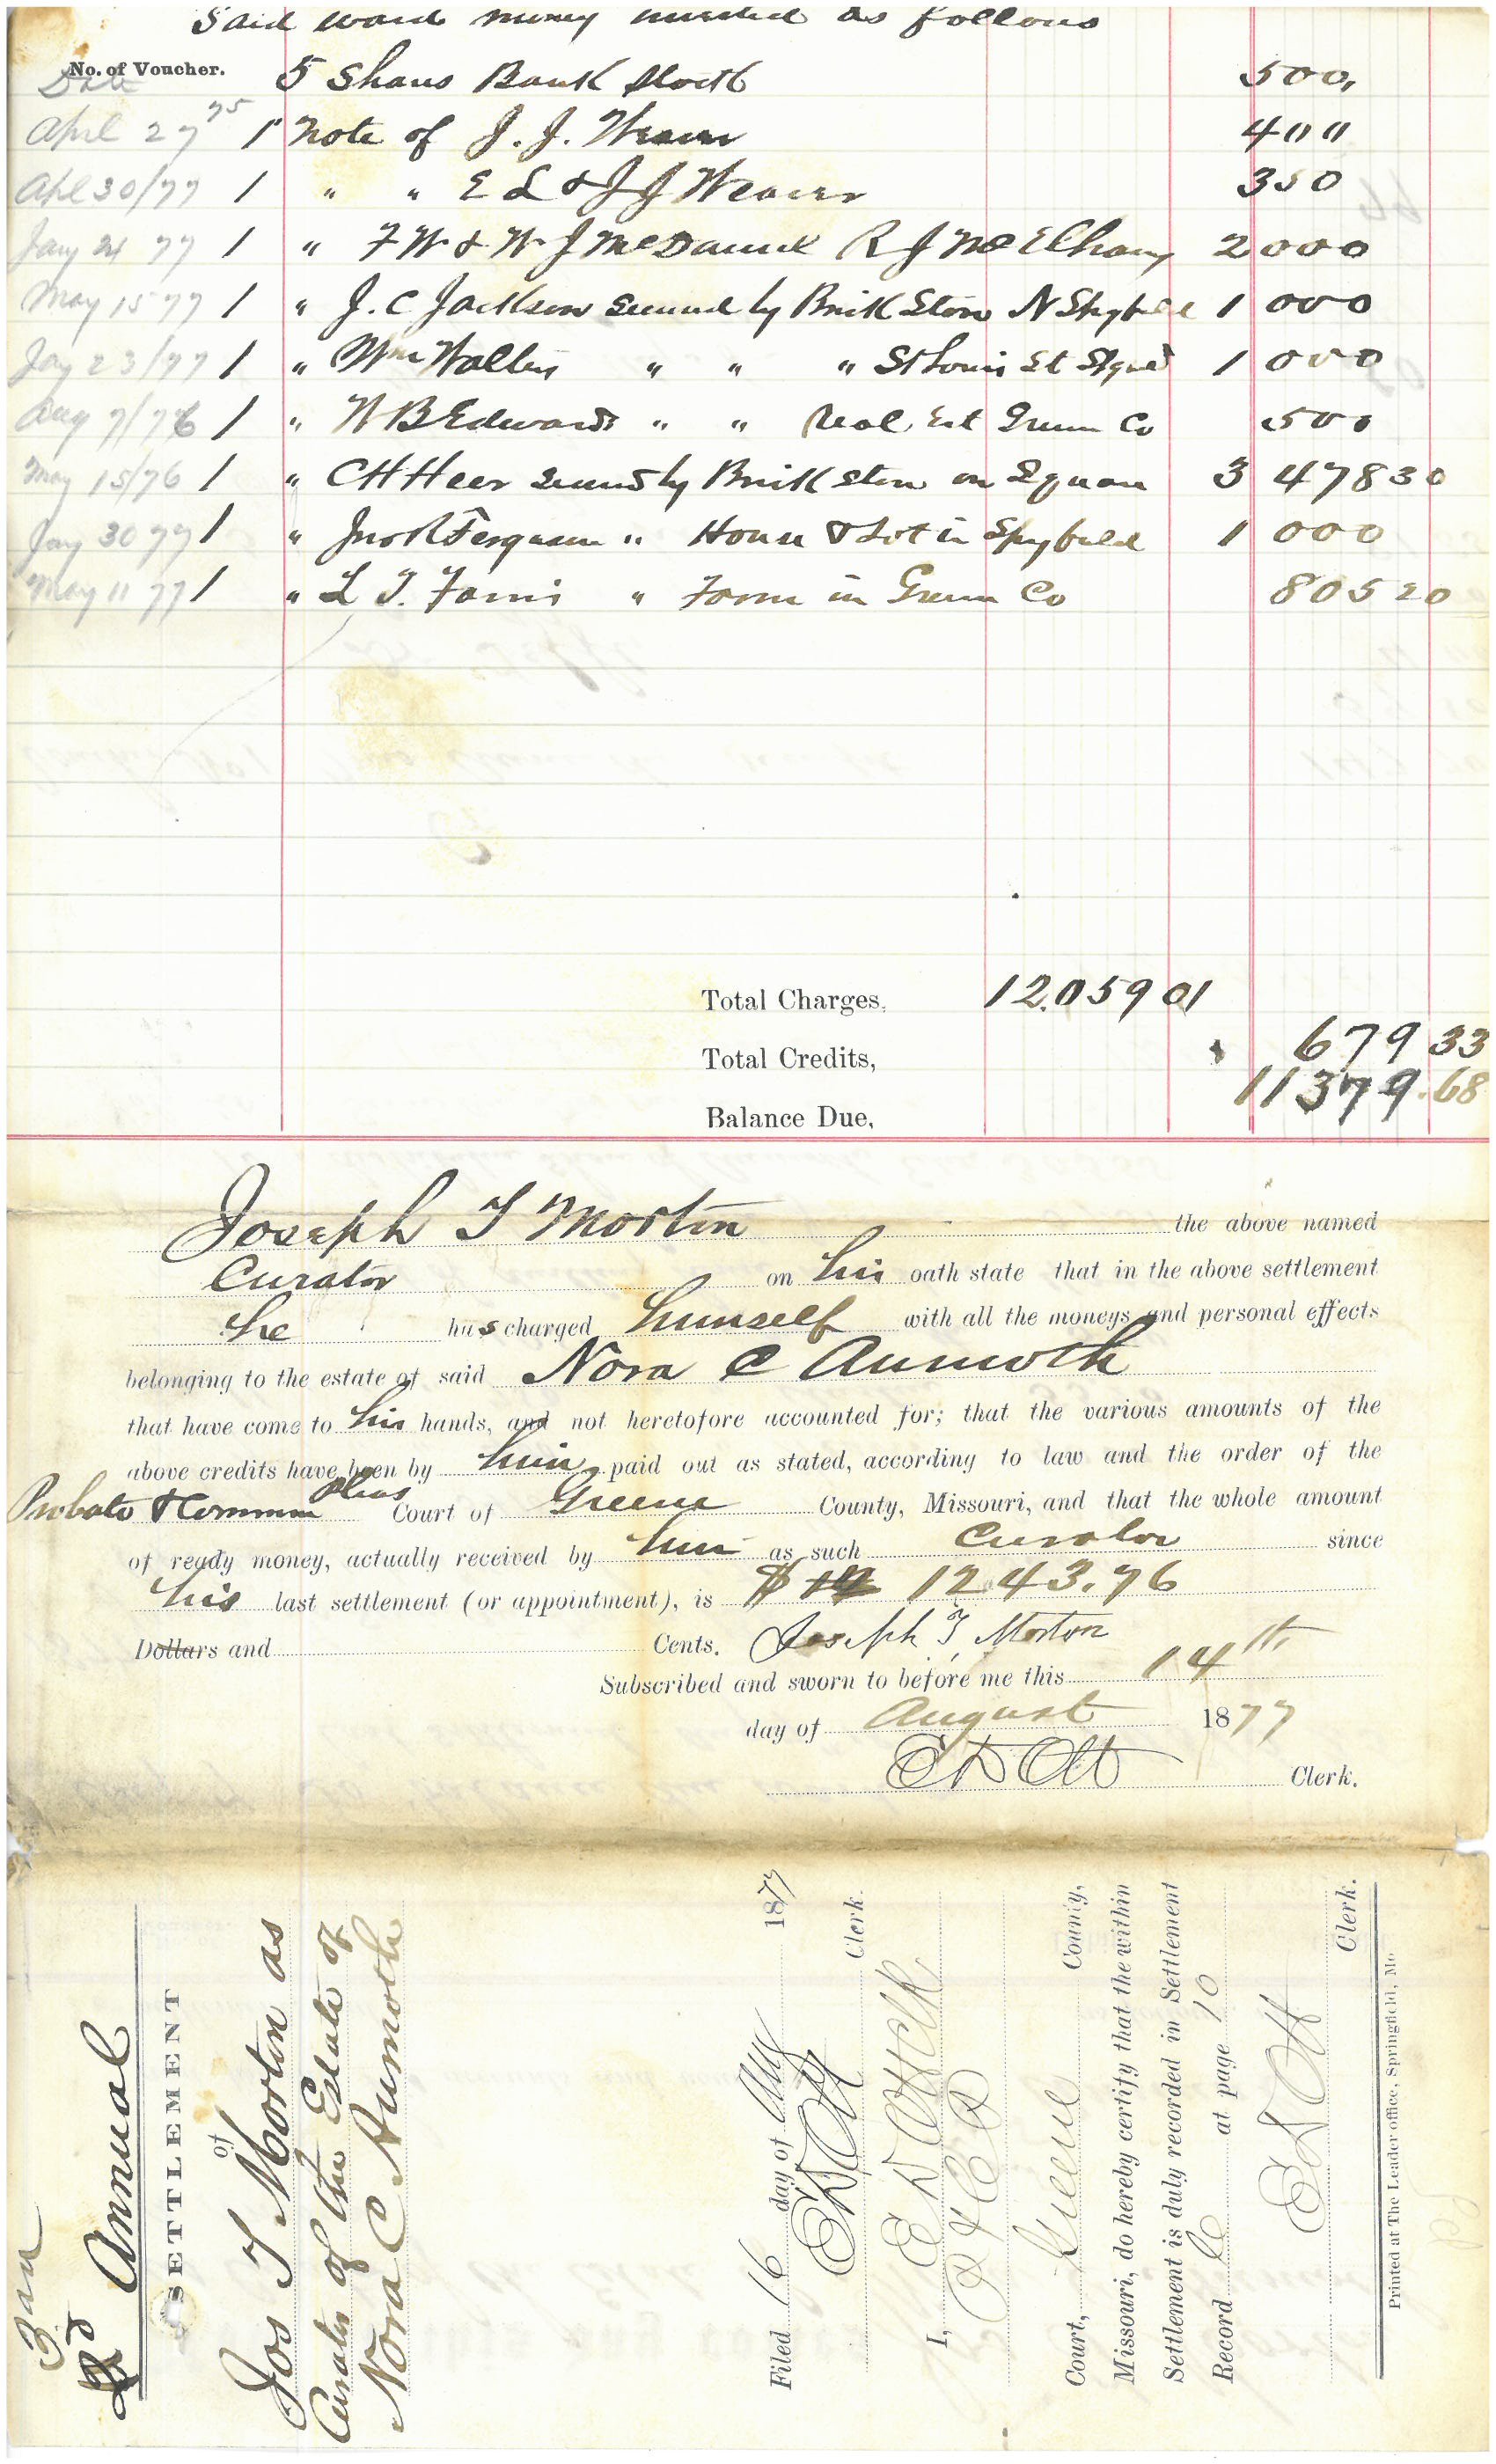 Said ward money invested as follows
No. of Voucher.
Date 5 Shares Bank Stock 500.
April 27 75 1 Note of J. J. Weaver 400
Apl 30/77 1 " " E L & J J Weaver 350
Jany 24 77 1 " F W & W J McDaniel R J McElhany 2000
May 15 77 1 " J. C Jackson secured by Brick Store N Spgfield 1000
Jay 23/77 1 " Wm Walley " " " St Louis St Spgd 1000
Aug 7/76 1 " W B Edwards " " Real Est Green Co 500
May 15/76 1 " C H Heer secured by Brick store on Square 3 478 30
Jay 30 77 1 " Jno R Ferguson " House & Lot in Spgfield 1000
May 11 77 1 " L T. Farris " Farm in Green Co 805 20
Total Charges, 12.059 01
Total Credits, 679 33
11379.68
Balance Due,
Joseph T Morton the above named
Curator on his oath state that in the above settlement
he has charged himself with all the moneys and personal effects
belonging to the estate of said Nora C Aumoth
that have come to his hands, and not heretofore accounted for; that the various amounts of the
above credits have been by him paid out as stated, according to law and the order of the
Probate & Common Pleas Court of Greene County, Missouri, and that the whole amount
of ready money, actually received by him as such Curator since
his last settlement (or appointment), is $ 1243.76
Dollars and Cents. Joseph T, Morton
Subscribed and sworn to before me this 14th
day of August 1877
E D Ott Clerk.
3rd
Annual
SETTLEMENT
of
Jos T Morton as
Curator of the Estate of
Nora C Aumoth
Filed 16 day of Aug 1877
E D Ott Clerk
I, E D Ott Clk
P & C P
Court, Greene County,
Missouri, do hereby certify that the within
Settlement is duly recorded in Settlement
Record C at page 10
E D Ott
Clerk.
Printed at The Leader office, Springfield, Mo.